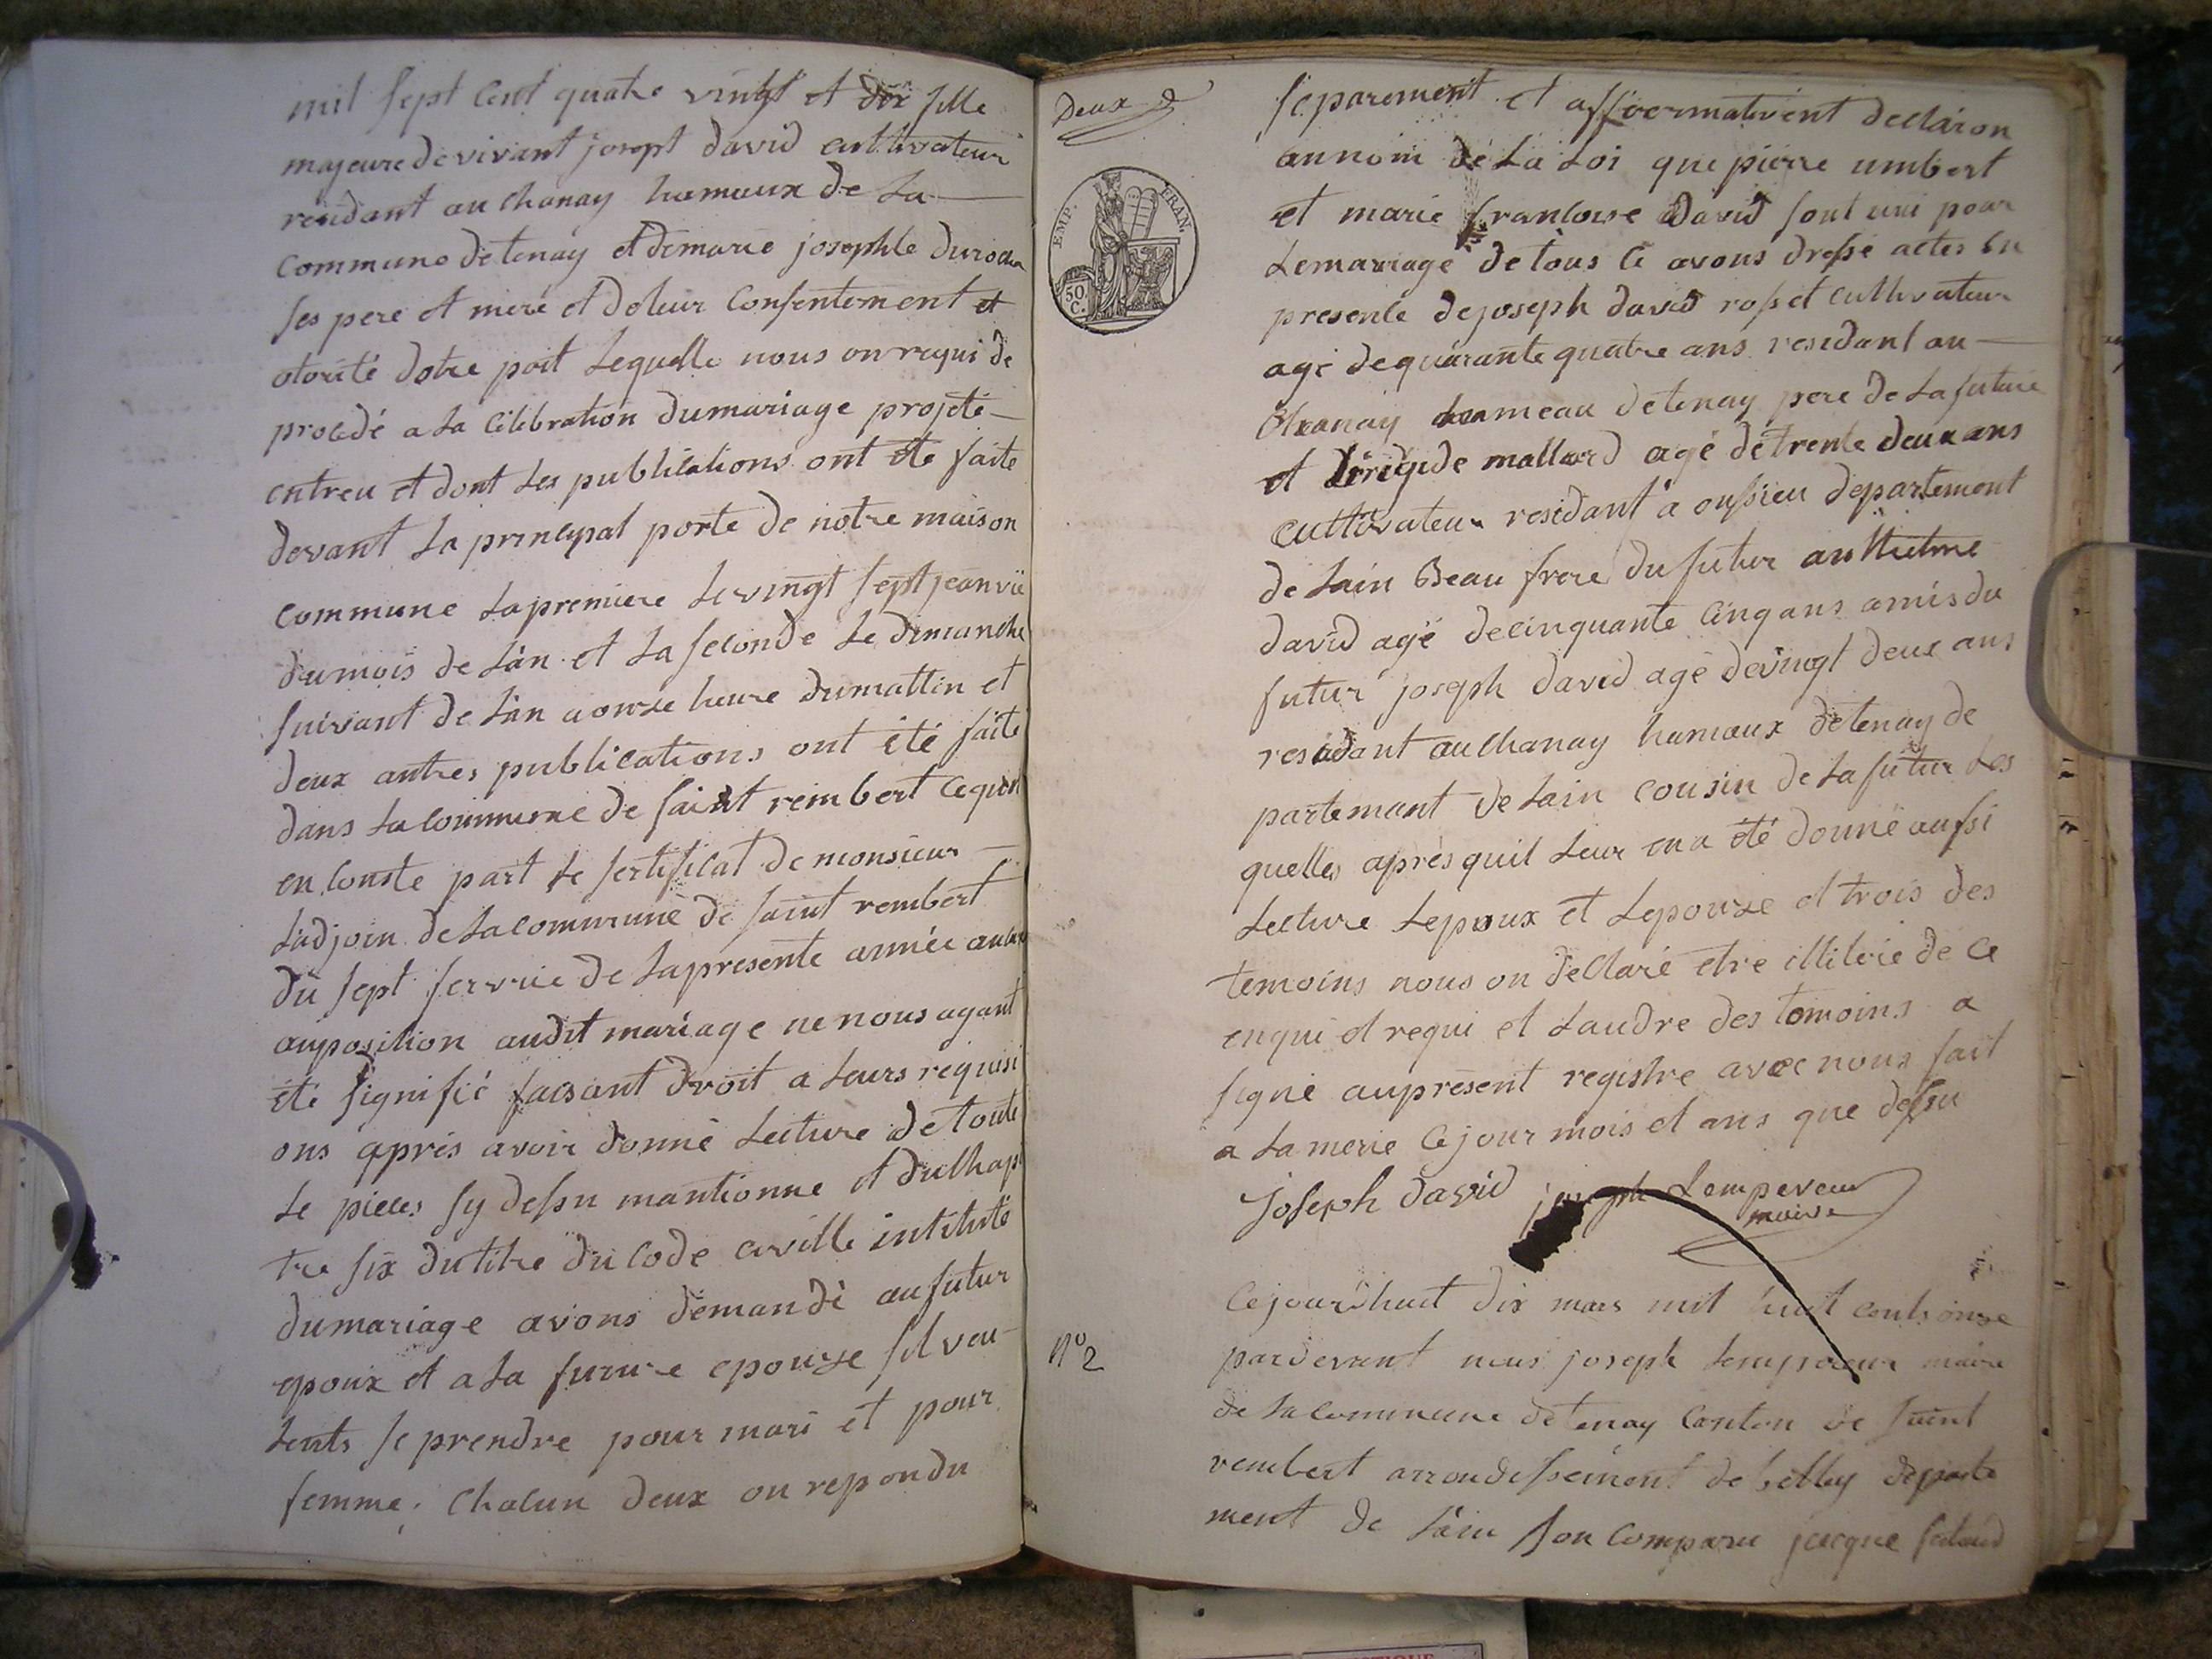 mil sept cent quatre vingt et dix fille
majeure de vivant josept david cultivateur
residant au Chanay hamaux de La
Commune de tenay et de marie josephte
ses pere et mere et de leur Consentement et
otorité dotre part Lequelle nous on requi de
procedé a La Célébration du mariage projeté
entreu et dont Les publications ont ete faite
devant La principal porte de notre maison
commune La premiere Le vingt sept jeanvié
du mois de Lan et La seconde Le dimanche
suivant de Lan a onze heure du mattin et
deux autres publications ont été faite
dans La Commune de saint rembert Ce
en Conste part Le sertificat de monsieur
Ladjoin de La commune de saint rembert
du sept fervrié de La presente année
auposition audit mariage ne nous ayant
été signifié faisant droit a Leurs requisi
ons après avoir donné Lecture de toute
Le pieces sy dessu mantionne et du Chapi
tre six du titre du Code civille intitulé
du mariage avons demandé au futur
epoux et a La furure epouze sil veu
Lents se prendre pour mari et pour
femme; Chacun deux on repondu
Deux
EMP. FRAN.
50 C.
separement et affoermativent declaron
aunom de La Loi que pierre umbert
et marie francoise David sont uni pour
Le mariage de tous Ce avons dressé actes en
presente de joseph david rosset cultivateur
agé de quarante quatre ans residant au
Chanay hameau de tenay pere de La future
et mallard agé de trente deux ans
cultivateur residant a oussieu departement
de Lain Beau frere du futur antheme
david agé de cinquante Cinq ans amis du
futur joseph david agé de vingt deux ans
residant au Chanay hamaux de tenay de
partemant de Lain cousin de La futur Les
quelles après quil Leur en a été donné aussi
Lecture Lepoux et Lepouze et trois des
temoins nous on declaré etre illiteré de Ce
enqui et requi et Laudre des temoins a
signé au present registre avec nous fait
a La merie Ce jour mois et ans que dessu
Joseph David joseph Lempereur
maire
N° 2
Ce jourdhuit dix mars mil huit cents onze
pardevant nous joseph Lempereur maire
de La commune de tenay Canton de saint
rembert arrondissement de belley departe
ment de Lain son Comparu jacque